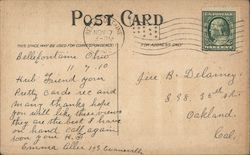 POST CARD
THIS SPACE MAY BE USED FOR CORRESPONDENCE
FOR ADDRESS ONLY
NOV 7
Bellefontaine Ohio
11-7-10
Kind Friend your
Pretty cards rec and
Many thanks hope
you will like these views
they are the best I have
on hand. Call again
soon your
Emma Allen 143
Delaney
898. 36th St
Oakland.
Cal.